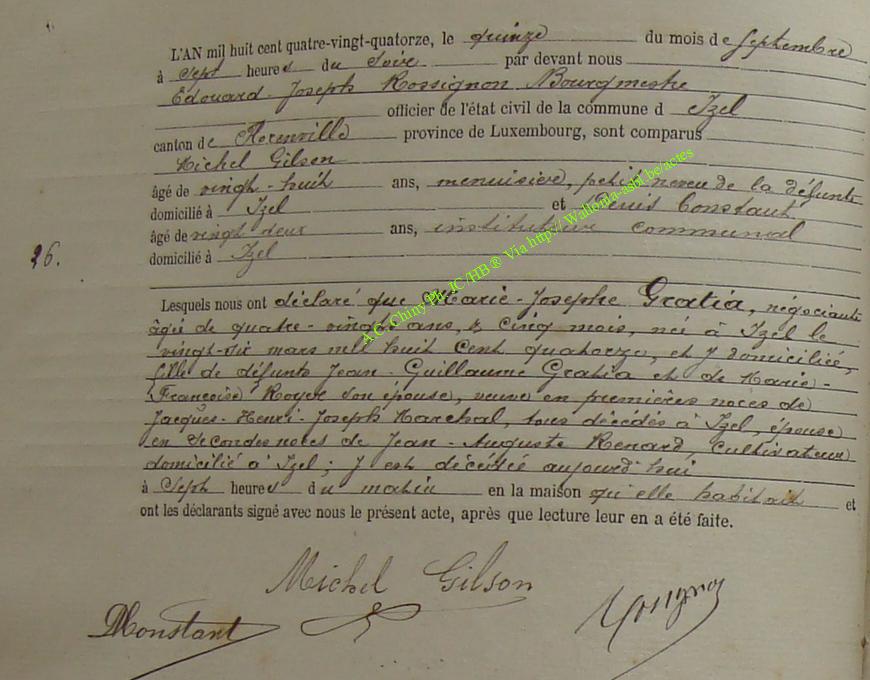 L'AN mil huit cent quatre-vingt-quatorze, le quinze du mois de Septembre
à Sept heures du Soir par devant nous
Edouard-Joseph Rossignon Bourgmestre
officier de l'état civil de la commune d Izel
canton de Florenville province de Luxembourg, sont comparus
Michel Gilson
âgé de vingt-huit ans, menuisier, petit neveu de la défunte
domicilié à Izel et Denis Constant
âgé de vingt deux ans, instituteur communal
26.
domicilié à Izel
Lesquels nous ont déclaré que Marie-Josephe Gratia, négociante
âgée de quatre-vingts ans, & cinq mois, née à Izel le
vingt-six mars mil huit Cent quatorze, et y domiciliée,
fille de défunts Jean-Guillaume Gratia et de Marie-
Françoise Royer son épouse, veuve en premières noces de
Jacques-Henri-Joseph Marchal, tous décédés à Izel, épouse
en Secondes noces de Jean-Auguste Renard, Cultivateur
domicilié à Izel; y est décédée aujourd'hui
à Sept heures du matin en la maison qu'elle habitait et
ont les déclarants signé avec nous le présent acte, après que lecture leur en a été faite.
Michel Gilson
DConstant
Rossignon
A.C. Chiny Ph. JC/HB ® Via http://Wallonia-asbl.be/actes